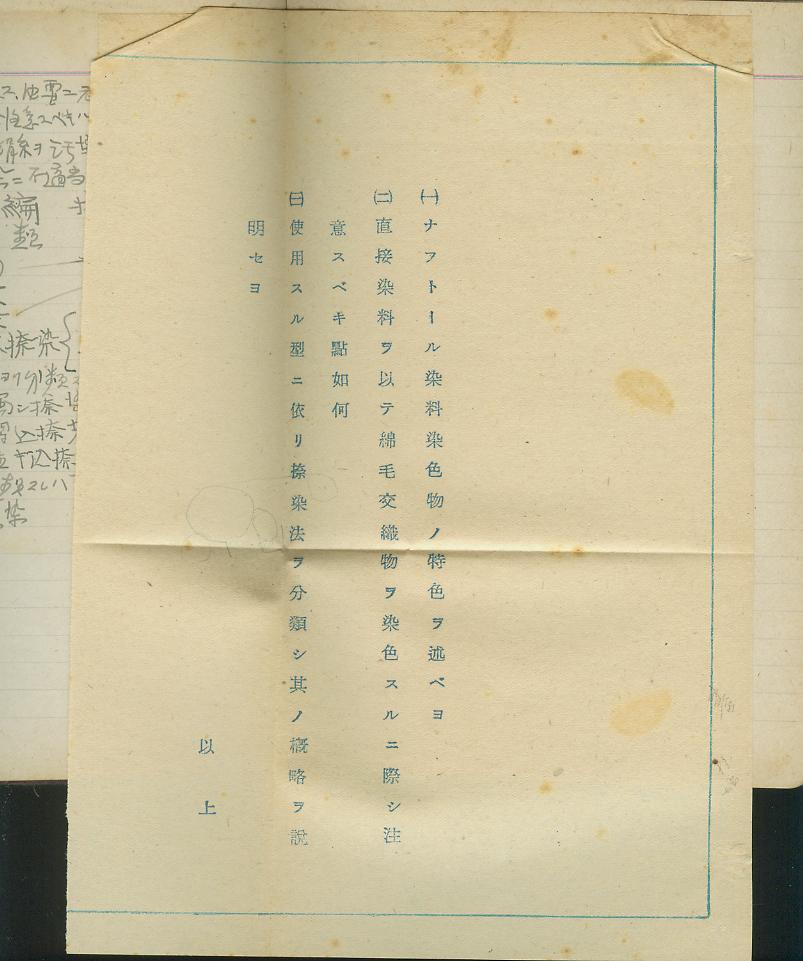 ㈠ナフトール染料染色物ノ特色ヲ述ベヨ
㈡直接染料ヲ以テ綿毛交織物ヲ染色スルニ際シ注
意スベキ點如何
㈢使用スル型ニ依リ捺染法ヲ分類シ其ノ概略ヲ說
明セヨ
以上
編
類
捺染